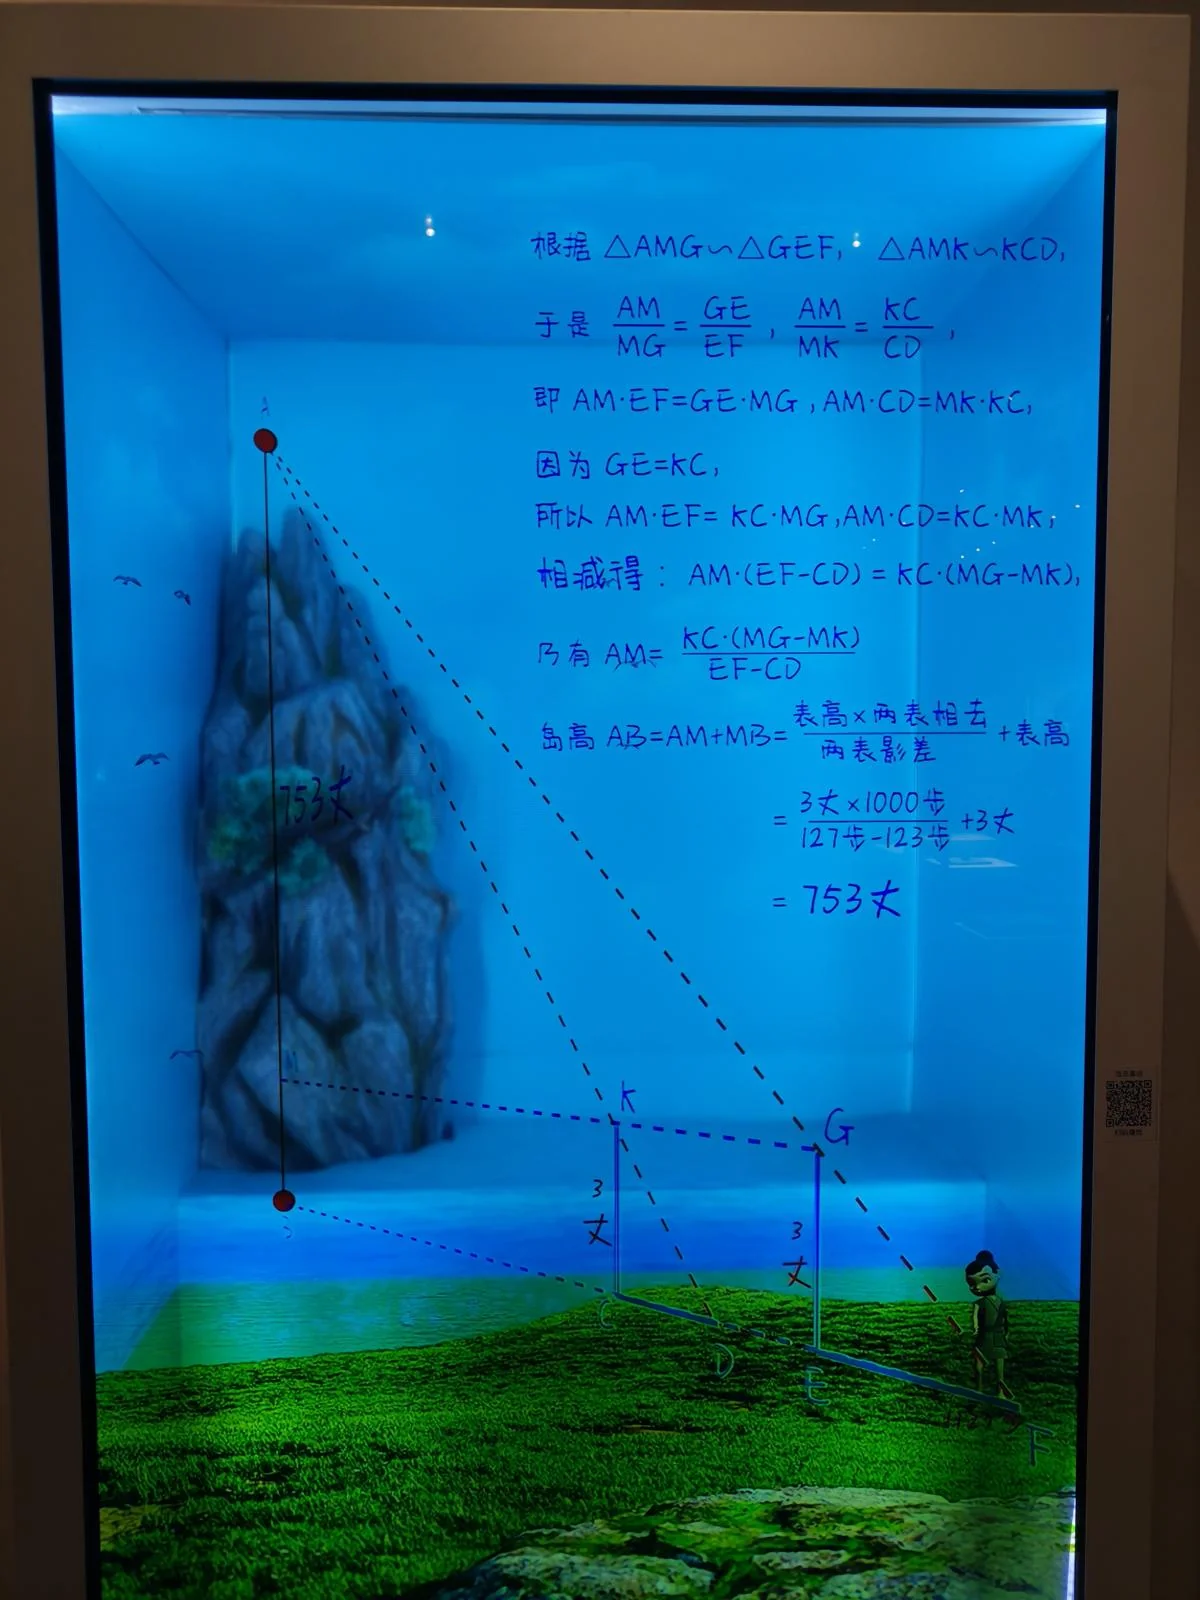 根据 △AMG∽△GEF, △AMK∽KCD,
于是 AM/MG = GE/EF , AM/MK = KC/CD ,
即 AM·EF=GE·MG , AM·CD=MK·KC,
因为 GE=KC,
所以 AM·EF= KC·MG ,AM·CD=KC·MK,
相减得: AM·(EF-CD) = KC·(MG-MK),
乃有 AM= KC·(MG-MK)/EF-CD
岛高 AB=AM+MB= 表高×两表相去/两表影差 +表高
= 3丈×1000步/127步-123步 +3丈
= 753丈
A
753丈
M
K
G
3
丈
3
丈
B
C
D
E
F